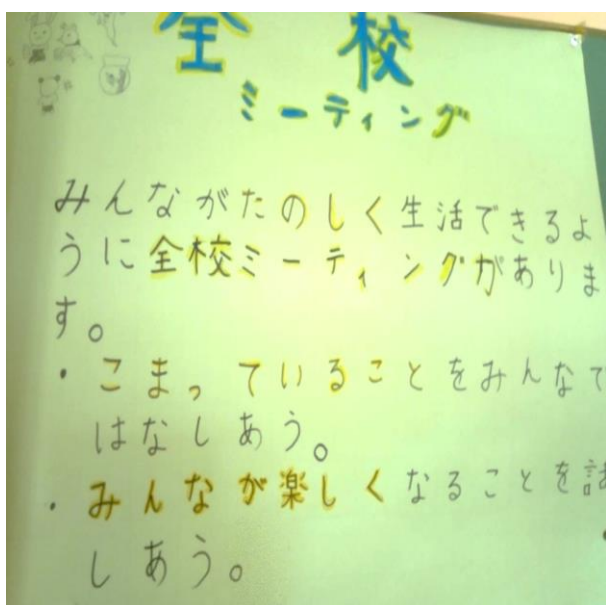 全校
ミーティング
みんながたのしく生活できるよ
うに全校ミーティングがありま
す。
・こまっていることをみんなで
はなしあう。
・みんなが楽しくなることを話
しあう。